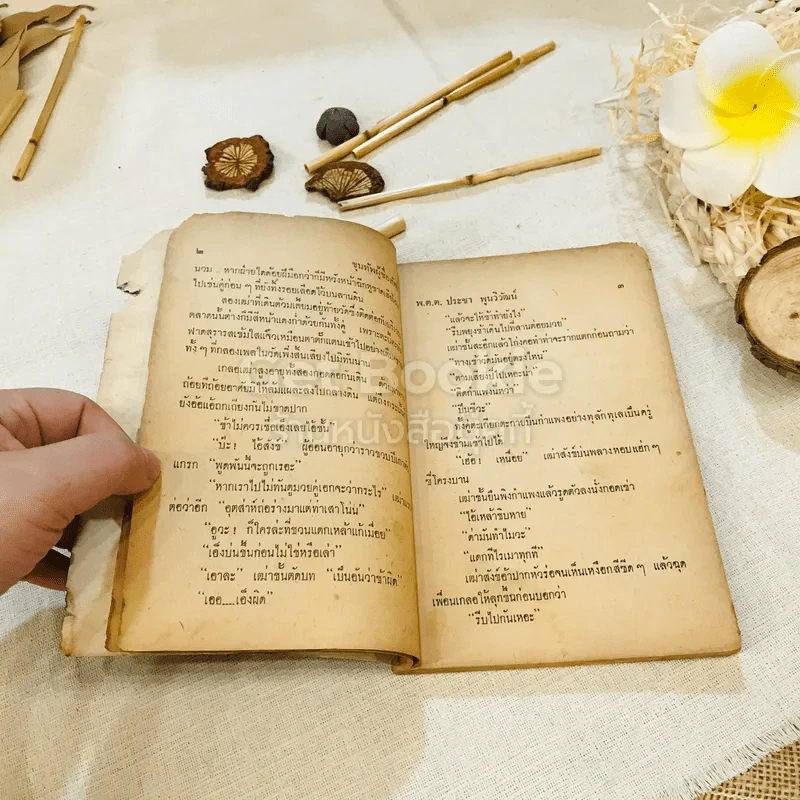 ๒
ขุนทัพผู้ชื่อ
นวม .. หากฝ่ายใดด้อยฝีมือกว่าก็มีหวังหน้าฉีก
ไปเช่นคู่ก่อน ๆ ที่ยังทิ้งรอยเลือดไว้บนลานดิน
สองเฒ่าที่เดินต้วมเตี้ยมอยู่ท้ายวัดซึ่งติดต่อกับ
ตลาดนั้นต่างก็มีสีหน้าแดงก่ำด้วยกันทั้งคู่ เพราะ
ฟาดสุรารสเข้มใสแจ๋วเหมือนตาตั๊กแตนเข้าไปอย่าง
ทั้ง ๆ ที่กลองเพลในวัดเพิ่งสิ้นเสียงไปมิทันนาน
เกลอเฒ่าสูงอายุทั้งสองกอดคอกันเดิน
ถ้อยทีถ้อยอาศัยมิให้ล้มแผละลงไปกลางดิน แต่ถึงกระนั้น
ยังอ้อแอ้ถกเถียงกันไม่ขาดปาก
“ข้าไม่ควรเชื่อเอ็งเลยไอ้ชั้น”
“บ๊ะ ! ไอ้สังข์” ผู้อ่อนอายุกว่าราวขวบปี
แกรก “พูดพันนี้จะถูกเรอะ”
“หากเราไปไม่ทันดูมวยคู่เอกจะว่ากะไร”
ต่อว่าอีก “อุตส่าห์ถ่อร่างมาแต่ท่าเสาโน่น”
“อูวะ ! ก็ใครล่ะที่ชวนแดกเหล้าแก้เมื่อย”
“เอ็งบ่นขึ้นก่อนไม่ใช่หรือเล่า”
“เอาละ” เฒ่าชั้นตัดบท “เป็นอันว่าข้าผิด”
“เออ....เอ็งผิด”
พ.ต.ต. ประชา พูนวิวัฒน์
๓
“แล้วจะให้ข้าทำยังไง”
“รีบพยุงข้าเดินไปที่ลานต่อยมวย”
เฒ่าชั้นสะอึกแล้วโก่งคอทำท่าจะรากแตกก่อนถามว่า
“ทางเข้าวัดมันอยู่ตรงไหน”
“ตามเสียงปี่ไปเหอะน่า”
“ติดกำแพงนี่หว่า”
“ปีนซีวะ”
ทั้งคู่ตะเกียกตะกายปีนกำแพงอย่างทุลักทุเลเป็นครู่
ใหญ่จึงข้ามเข้าไปได้
“เฮ้อ ! เหนื่อย” เฒ่าสังข์บ่นพลางหอบแฮ่ก ๆ
ซี่โครงบาน
เฒ่าชั้นยืนพิงกำแพงแล้วรูดตัวลงนั่งกอดเข่า
“ไอ้เหล้าชิบหาย”
“ด่ามันทำไมวะ”
“แดกทีไรเมาทุกที”
เฒ่าสังข์อ้าปากหัวร่อจนเห็นเหงือกสีซีด ๆ แล้วฉุด
เพื่อนเกลอให้ลุกขึ้นก่อนบอกว่า
“รีบไปกันเหอะ”
Get Bookie
ร้านหนังสือตู้กี้